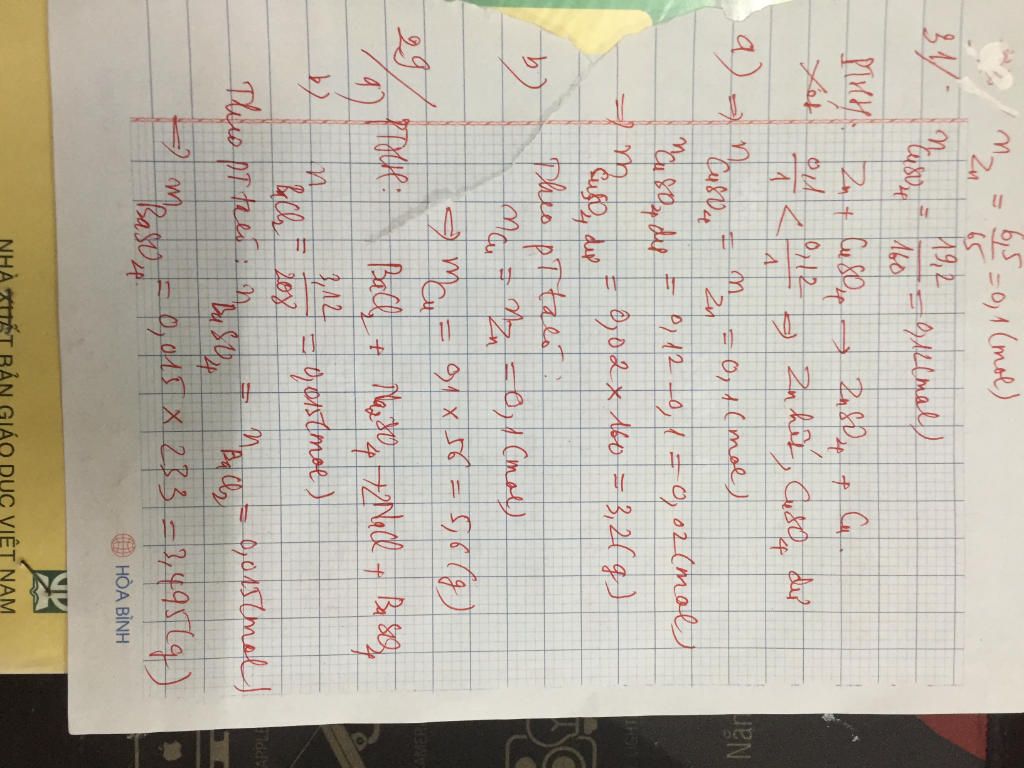 31/. n Zn = 6,5/65 = 0,1 (mol)
n CuSO4 = 19,2/160 = 0,12 (mol)
PTHH: Zn + CuSO4 → ZnSO4 + Cu.
Xét 0,1/1 < 0,12/1 ⇒ Zn hết, CuSO4 dư
a) ⇒ n CuSO4 = n Zn = 0,1 (mol)
n CuSO4 dư = 0,12 - 0,1 = 0,02 (mol)
⇒ m CuSO4 dư = 0,02 × 160 = 3,2 (g)
b) Theo PT ta có:
n Cu = n Zn = 0,1 (mol)
⇒ m Cu = 0,1 × 56 = 5,6 (g)
29/
a) PTHH: BaCl2 + Na2SO4 → 2NaCl + BaSO4
b) n BaCl2 = 3,12/208 = 0,015 (mol)
Theo PT ta có: n BaSO4 = n BaCl2 = 0,015 (mol)
⇒ m BaSO4 = 0,015 × 233 = 3,495 (g)
HÒA BÌNH
NHÀ XUẤT BẢN GIÁO DỤC VIỆT NAM
APPLE
LIGHT
Nắn